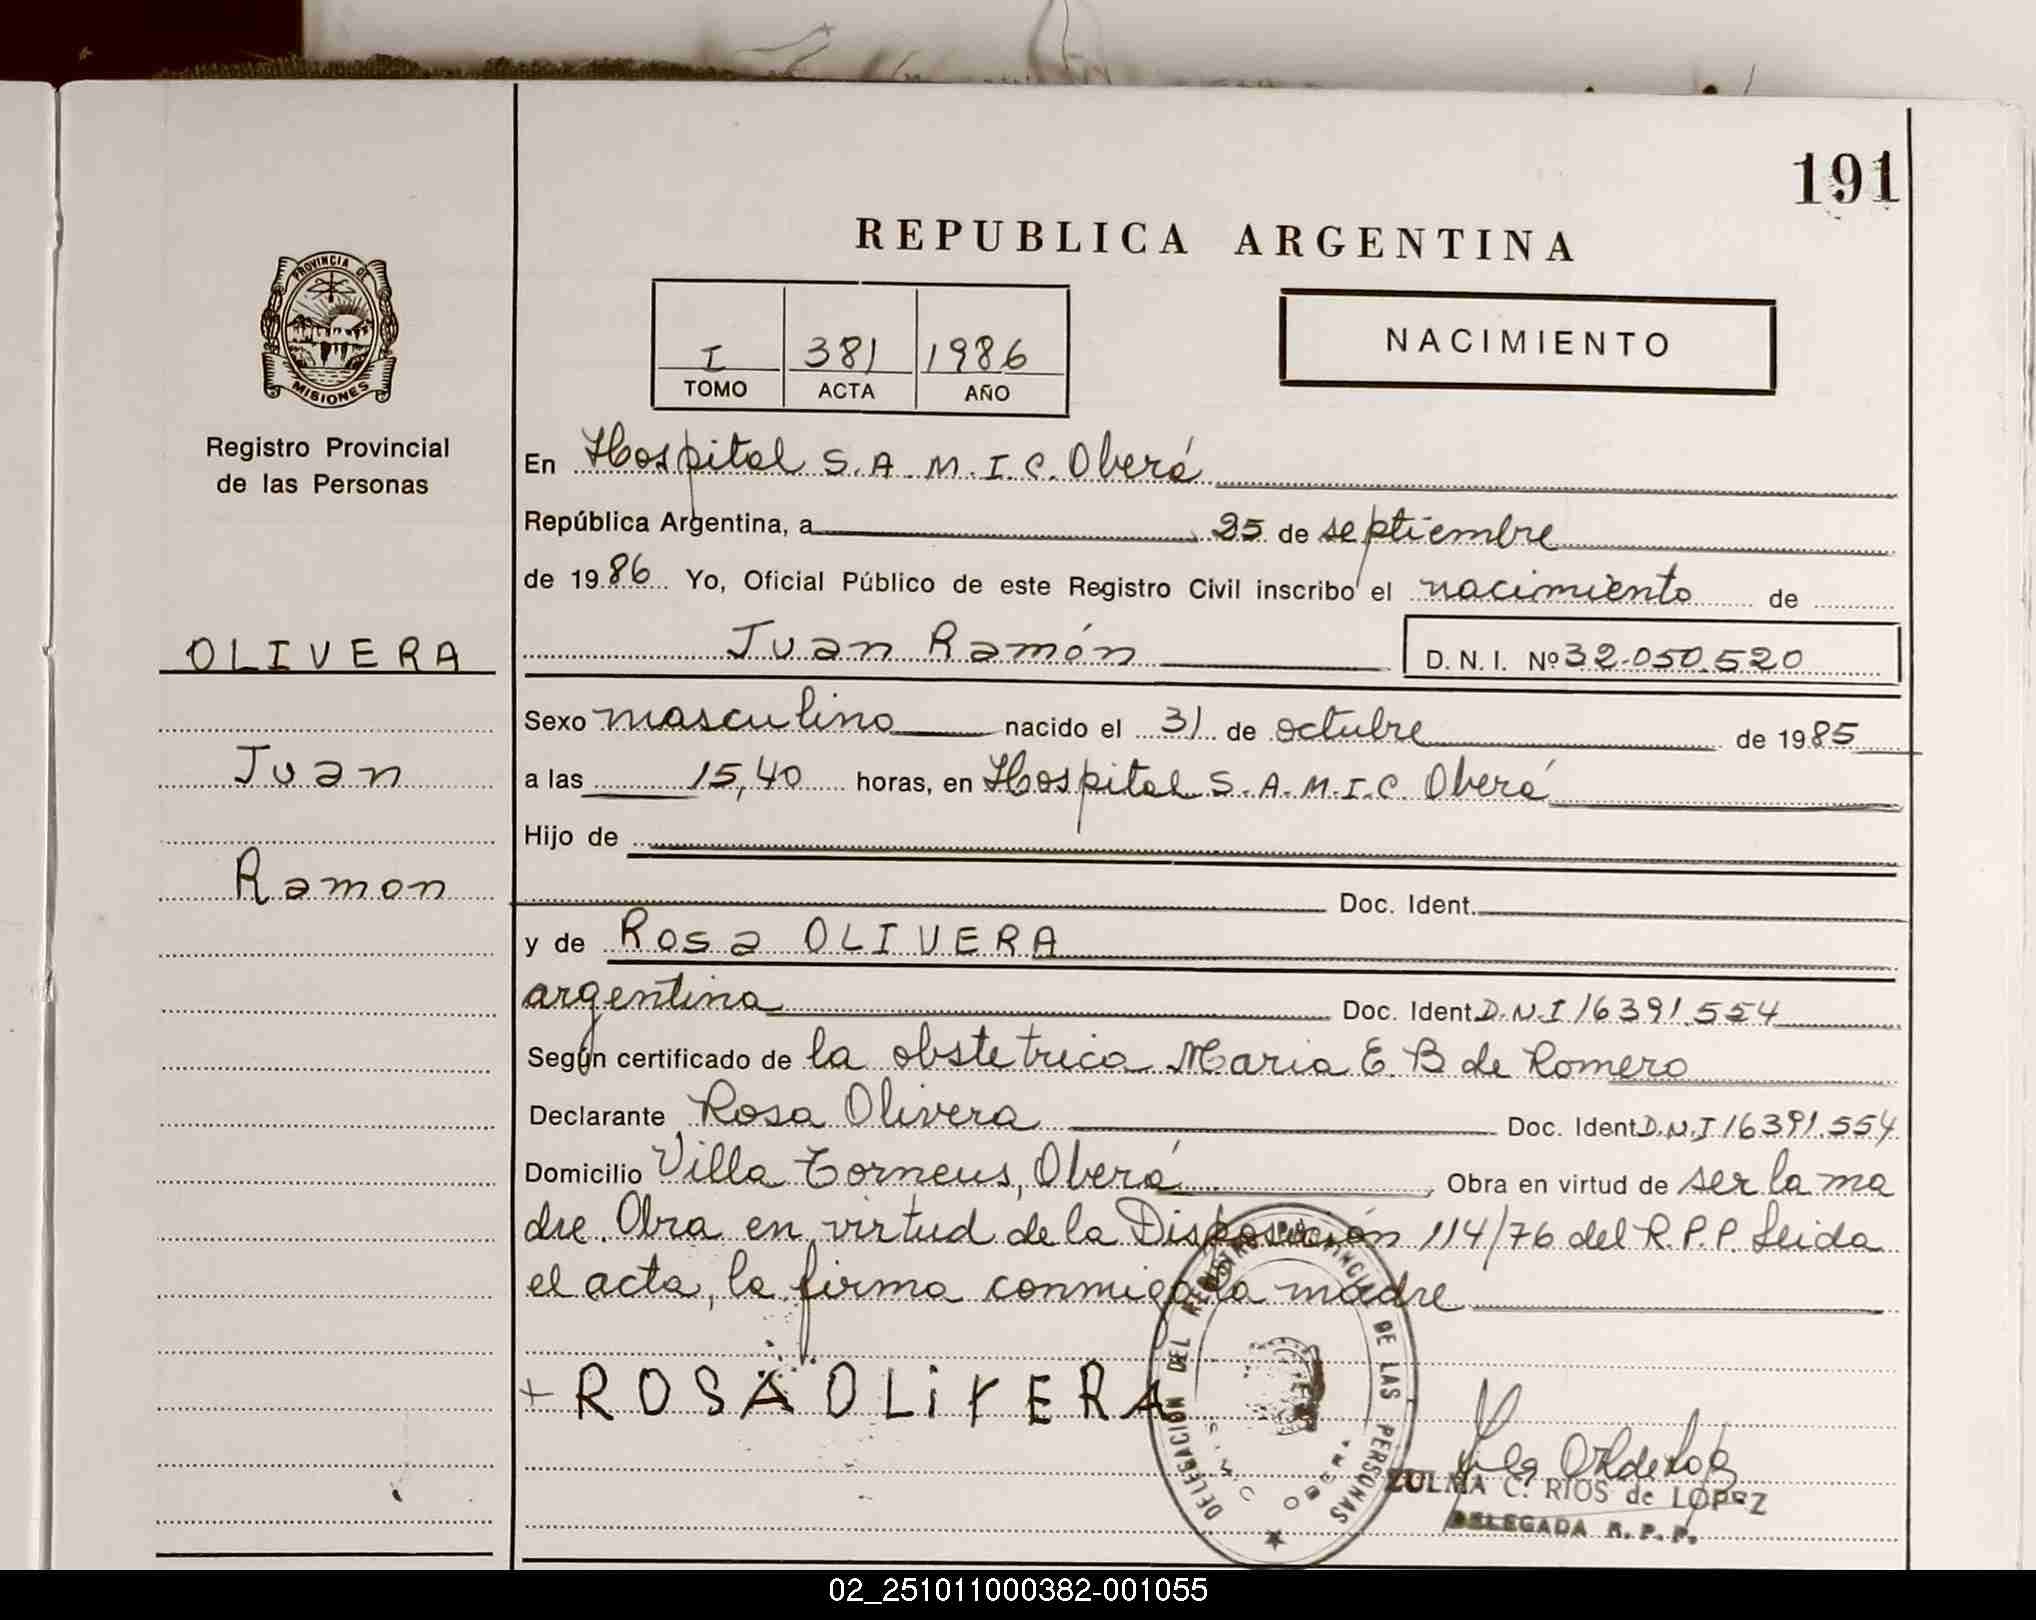 191
REPUBLICA ARGENTINA
PROVINCIA DE
MISIONES
Registro Provincial
de las Personas
I 381 1986
TOMO ACTA AÑO
NACIMIENTO
En Hospital S.A.M.I.C. Oberá
República Argentina, a 25 de septiembre
de 1986 Yo, Oficial Público de este Registro Civil inscribo el nacimiento de
OLIVERA
Juan Ramón D.N.I. Nº 32.050.520
Sexo masculino nacido el 31 de octubre de 1985
Juan
a las 15,40 horas, en Hospital S.A.M.I.C. Oberá
Hijo de
Ramon
Doc. Ident.
y de Rosa OLIVERA
argentina Doc. Ident. D.N.I 16391.554
Según certificado de la obstetrica Maria E. B de Romero
Declarante Rosa Olivera Doc. Ident. D.N.I 16391.554
Domicilio Villa Torneus, Oberá Obra en virtud de ser la ma
dre. Obra en virtud de la Disposición 114/76 del R.P.P. Leida
el acta, la firma conmigo la madre
+ ROSA OLiVERA
DELEGACION DEL REGISTRO PROVINCIAL DE LAS PERSONAS
OBERA
ZULMA C. RIOS de LOPEZ
DELEGADA R.P.P.
02_251011000382-001055